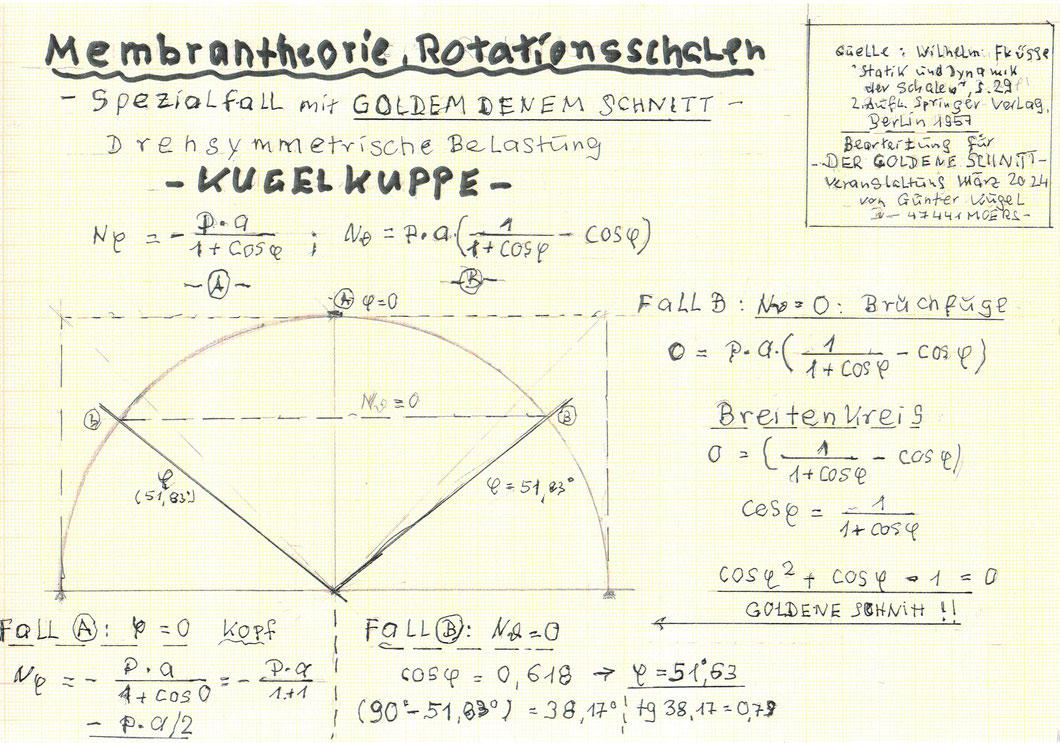 Membrantheorie, Rotationsschalen
- Spezialfall mit GOLDEM DENEM SCHNITT -
Drehsymmetrische Belastung
- KUGELKUPPE -
Quelle: Wilhelm Flügge
"Statik und Dynamik
der Schalen", S. 29
2. Aufl. Springer Verlag,
Berlin 1957
Bearbeitung für
- DER GOLDENE SCHNITT -
Veranstaltung März 2024
von Günter Vugel
D - 47441 MOERS -
Nφ = - p·a / (1+cosφ) ; Nϑ = p·a·(1/(1+cosφ) - cosφ)
- A -
- B -
A φ=0
B
Nϑ=0
B
φ
(51,83°)
φ=51,83°
Fall B: Nϑ=0: Bruchfuge
0 = p·a·(1/(1+cosφ) - cosφ)
Breitenkreis
0 = (1/(1+cosφ) - cosφ)
cosφ = 1/(1+cosφ)
cosφ² + cosφ - 1 = 0
GOLDENE SCHNITT !!
Fall A: φ=0 Kopf
Nφ = - p·a/(1+cos0) = - p·a/(1+1)
- p·a/2
Fall B: Nϑ=0
cosφ = 0,618 → φ=51°,63
(90°-51,83°) = 38,17° ; tg 38,17=0,79